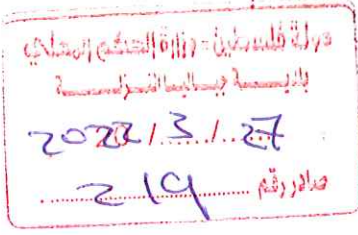 دولة فلسطين - وزارة الحكم المحلي
بلدية
2022/3/27
صادر رقم 219